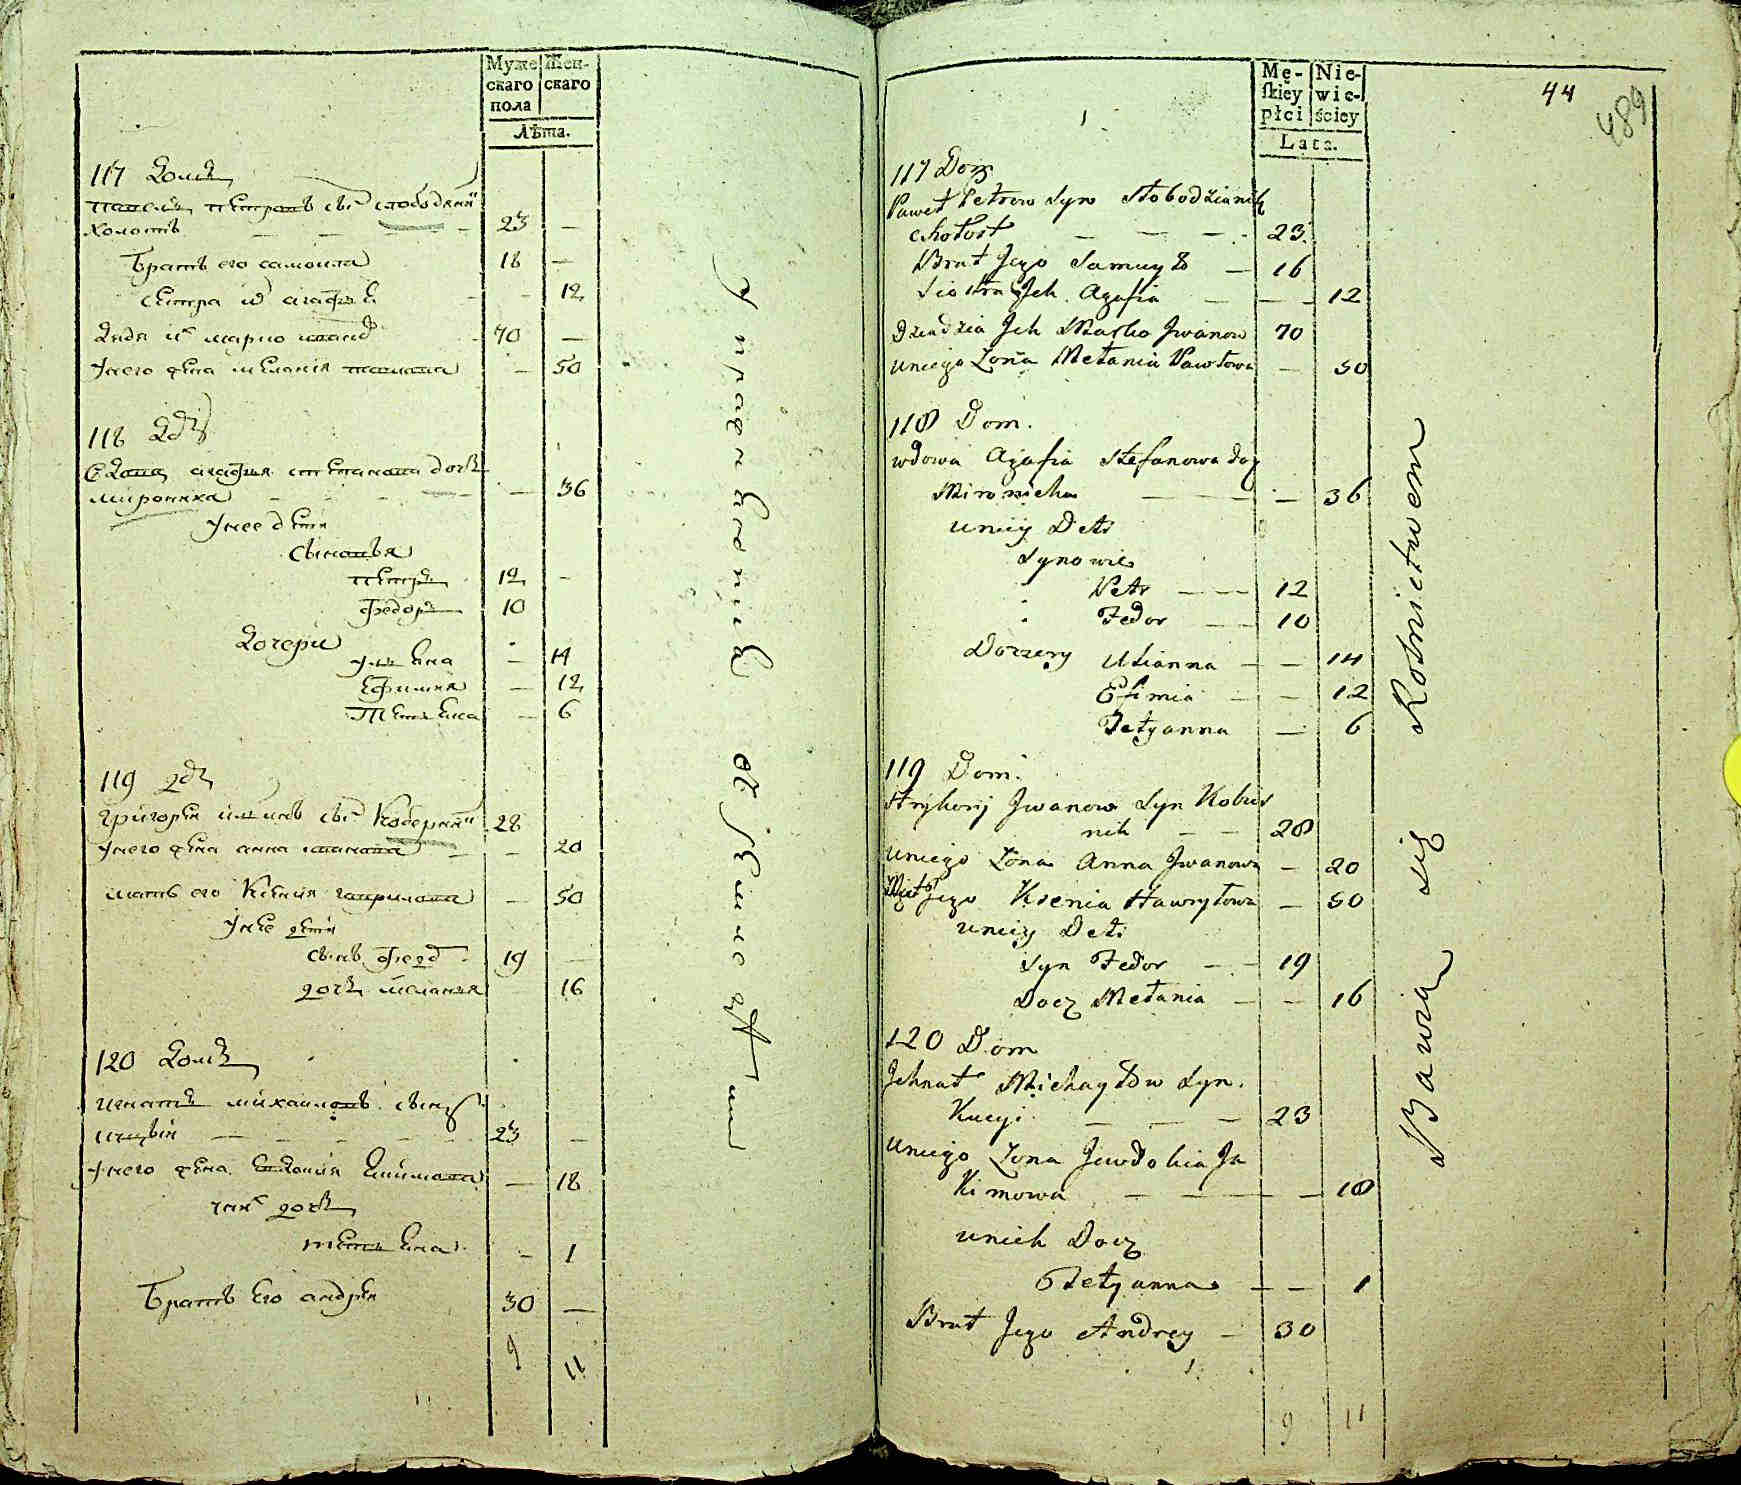 Муже
скаго
пола
Жен-
скаго
Лѣта.
117 Домъ
павелъ петровъ сынъ слободяни
холостъ — — — 23 —
братъ его самоила 18 —
сестра их агафия - - 12
дядя их марко иванов 70 —
Унего жена мелания павлова — 50
118 Домъ
вдова агафия степанова дочь
мирониха — 36
Унее дети
сыновья
петръ 12 -
федоръ 10
Дочери
ульяна — 14
ефимия — 12
татьяна — 6
119 домъ
григорей ивановъ сынъ Коберни 28
Унего жена анна иванова — — 20
мать его Ксения гаврилова — 50
Унее дети
сынъ федор 19 —
дочь мелания 16
120 Домъ
игнатъ михаиловъ сынъ
23 —
Унего жена евдокия екимова — 18
дочь
татьяна - 1
братъ его андрей 30 —
9 11
Упражняются
Mę-
ſkiey
płci
Nie-
wie-
ściey
Lata.
44
489
117 Dom
Paweł Petrow Syn Słobodzianik
chołost — — — 23
Brat Jego Samuyło — 16
Siostra Jch Agafia — — — 12
Dziadzia Jch Marko Jwanow 70
uniego Zona Mełania Pawłowa — 50
118 Dom.
wdowa Agafia Stefanowa doz
Mironicha — — — 36
uniiy Deti
Synowie
Petr — — 12
Fedor — — 10
Doczery Ulianna — — 14
Efimia — — 12
Tetyanna — 6
119 Dom.
Hryhorij Jwanow Syn Kober
nik — — 28
uniego Zona Anna Jwanowa — 20
Mat Jego Ksenia Hawryłowa — 50
uniiy Deti
Syn Fedor — — 19
Docz Mełania — — 16
120 Dom
Jchnat Michayłow Syn.
Kucyi — — — 23
uniego Zona Jewdokia Ja
Kimowa — — — — 18
unich Docz
Tetyanna — — 1
Brat Jego Andrey — 30
9 11
Bawia się Rolnictwem